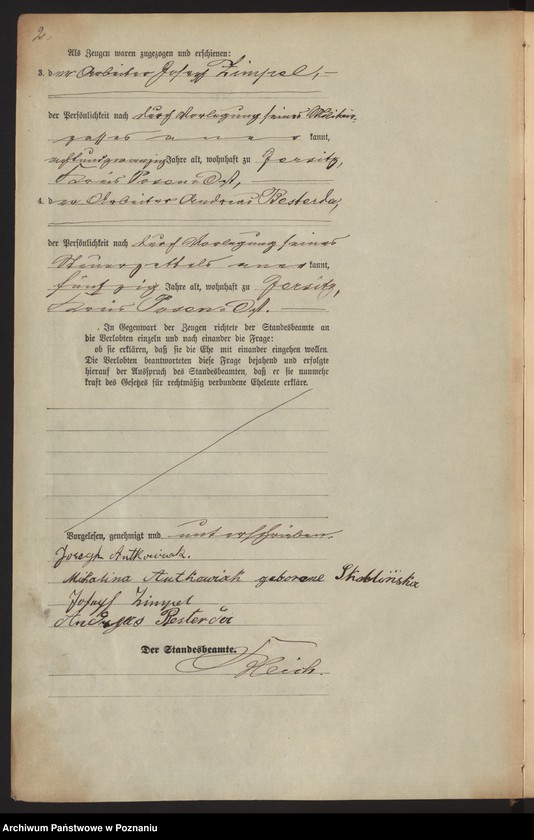 2.
Als Zeugen waren zugezogen und erschienen:
3. der Arbeiter Josef Zimpel,
der Persönlichkeit nach durch Vorlegung seines Militär-
passes aner kannt,
achtundzwanzig Jahre alt, wohnhaft zu Jersitz,
Kreis Posen Ost,
4. der Arbeiter Andreas Besterda,
der Persönlichkeit nach durch Vorlegung seines
Steuerzettels aner kannt,
fünfzig Jahre alt, wohnhaft zu Jersitz,
Kreis Posen Ost.
In Gegenwart der Zeugen richtete der Standesbeamte an
die Verlobten einzeln und nach einander die Frage:
ob sie erklären, daß sie die Ehe mit einander eingehen wollen.
Die Verlobten beantworteten diese Frage bejahend und erfolgte
hierauf der Ausspruch des Standesbeamten, daß er sie nunmehr
kraft des Gesetzes für rechtmäßig verbundene Eheleute erkläre.
Vorgelesen, genehmigt und unterschrieben.
Joseph Antkowiak.
Michalina Antkowiak geborene Skoblińska
Josef Zimpel
Andreas Besterda
Der Standesbeamte.
Archiwum Państwowe w Poznaniu